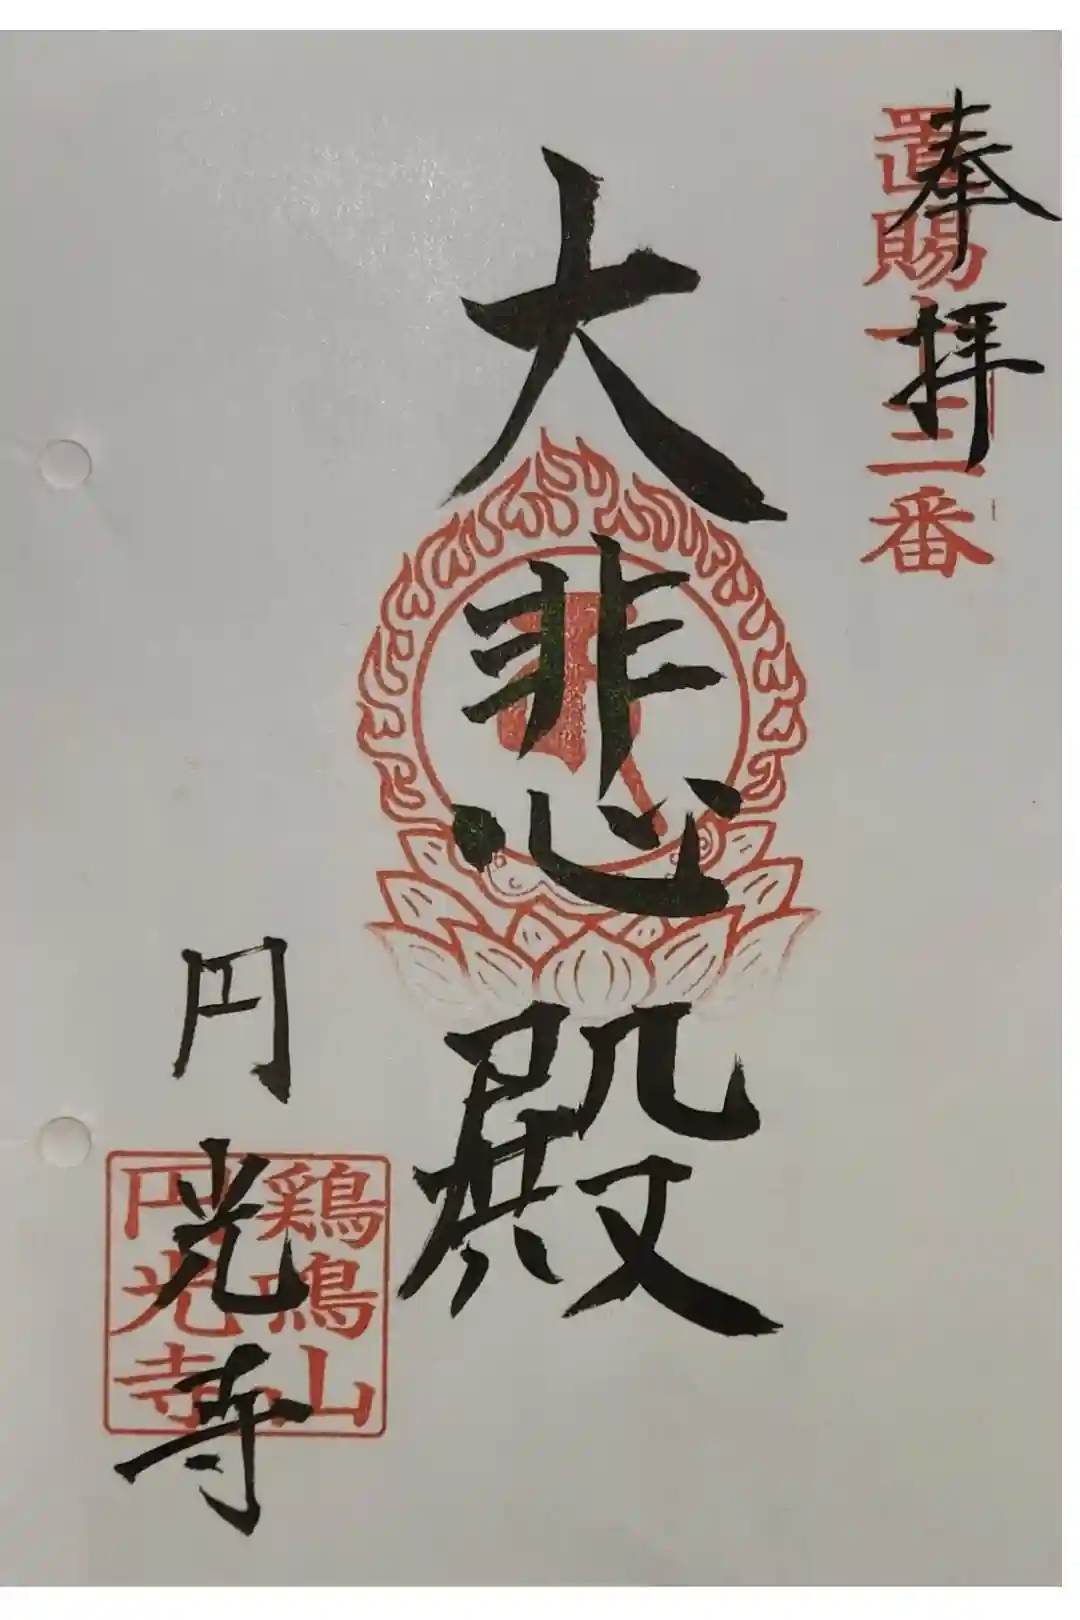 奉拝
置賜十三番
大悲殿
円光寺
鶏鳴山
円光寺